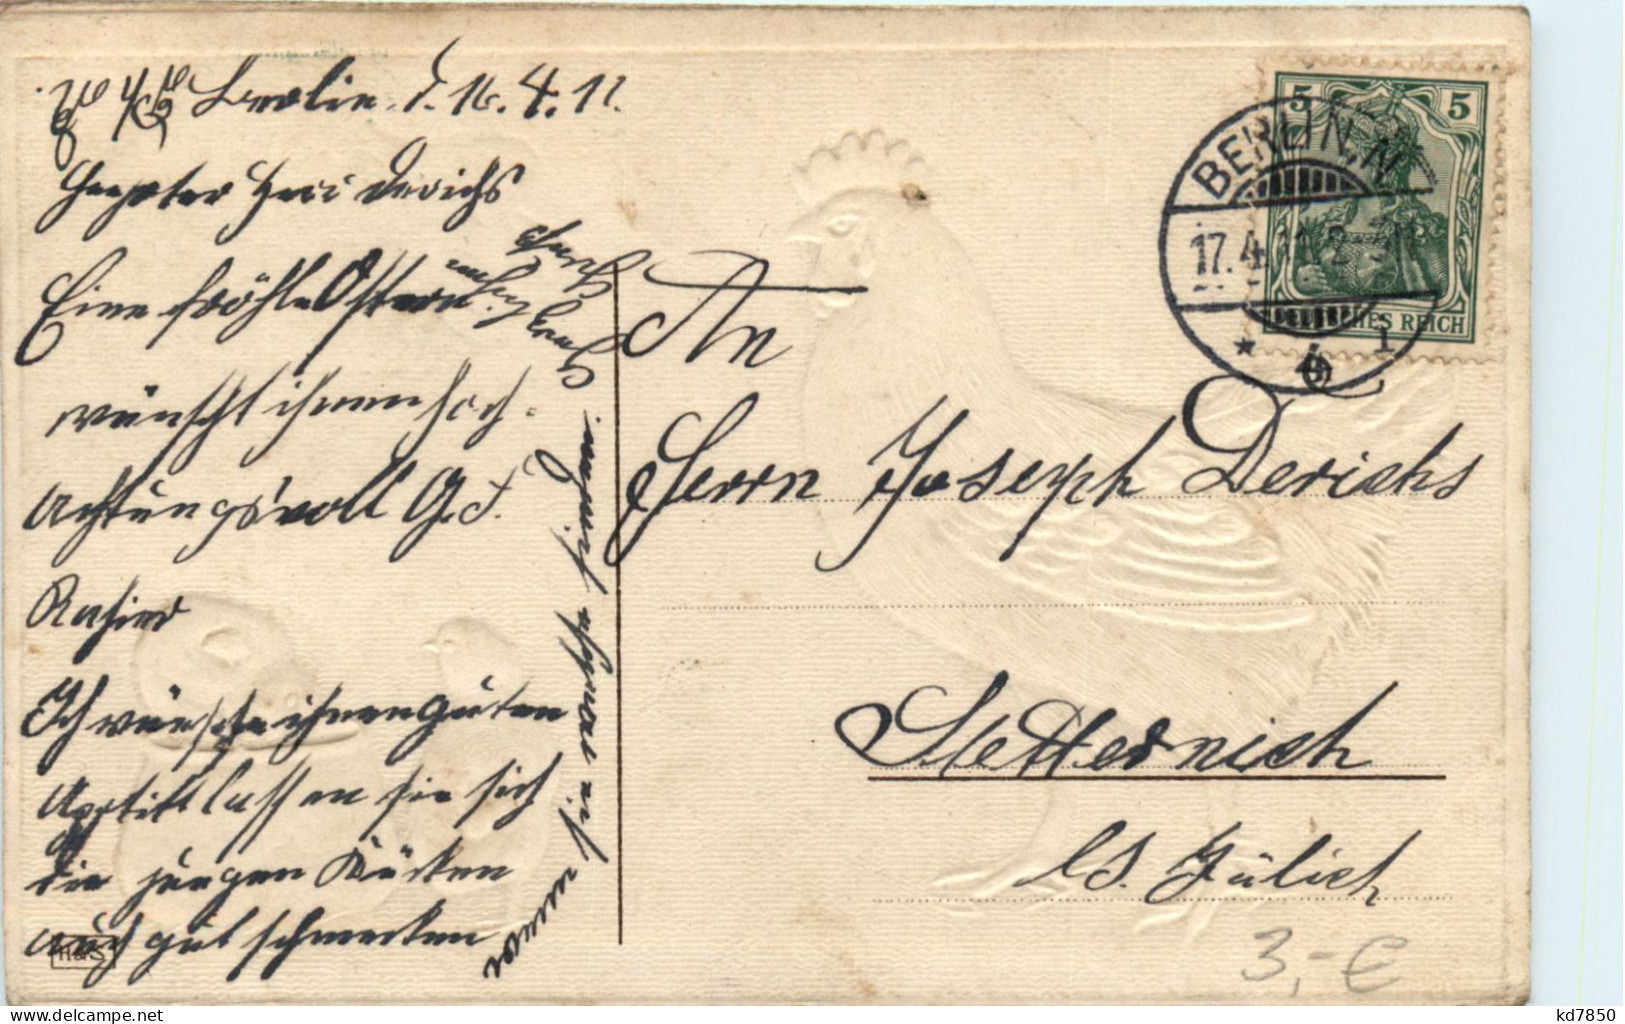 Berlin, d. 16. 4. 11.
Geehrter Herr Derichs
Eine fröhle Ostern
wünscht ihnen hoch-
Achtungsvoll G. F.
Ich wünsche ihnen guten
Apptitt lassen sie sich
die jungen Kücken
auch gut schmecken
wenn sie
H&S
An
Herrn Joseph Derichs
Stetternich
bs. Jülich
BERLIN, N
17.4.11.2-3N
* 4 i
5 5
DEUTSCHES REICH
3,- €
kd7850